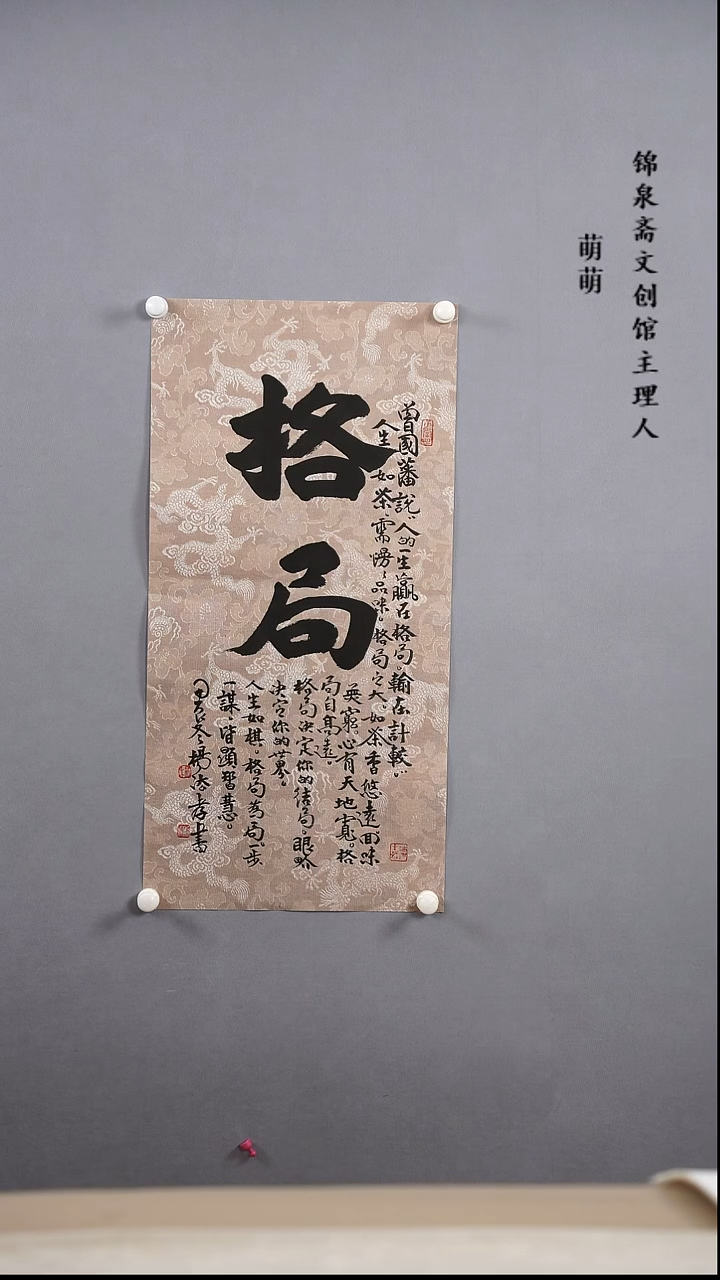 锦泉斋文创馆主理人
萌萌
格局
曾國藩説:“人的一生贏在格局。輸在計較。”
人生如茶,需慢慢品味。格局之大。如茶香悠遠回味
無窮。心有天地寬。格
局自高遠。
格局决定你的结局。眼
决定你的世界。
人生如棋。格局為局。一步
一謀,皆顯智慧。
冬楊書